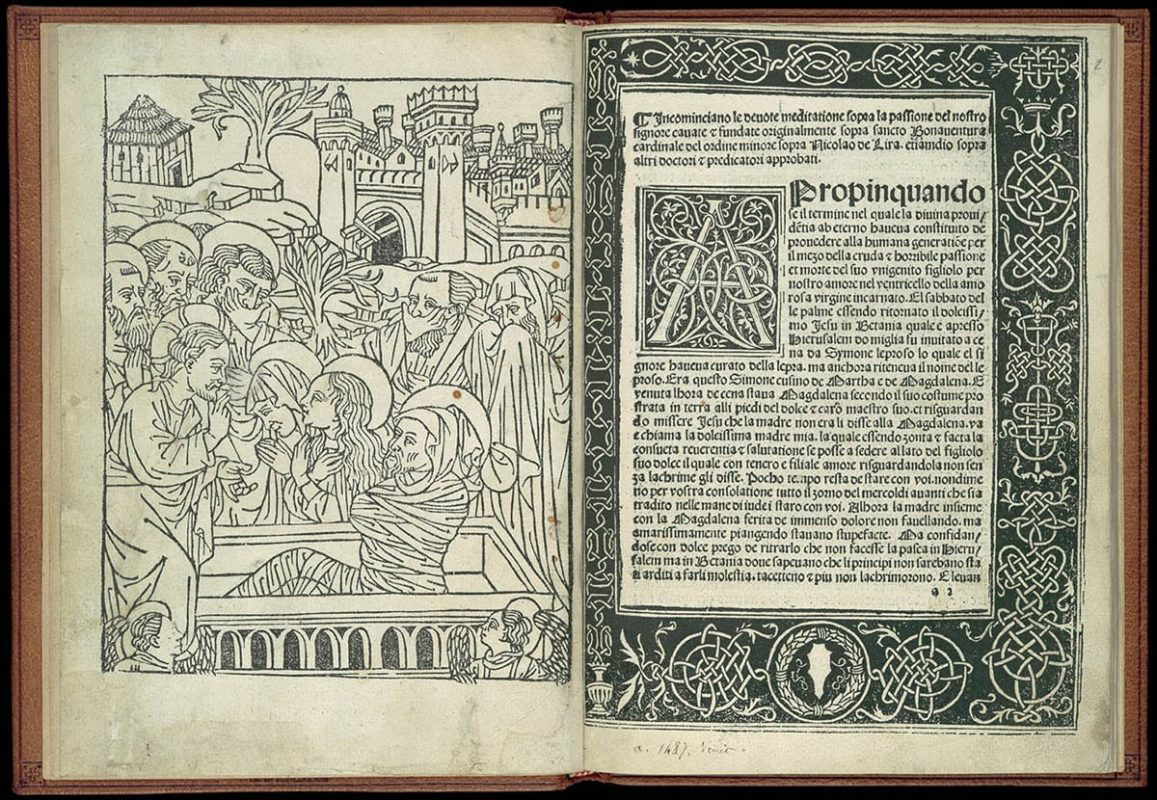 2
¶ Incominciano le devote meditatione sopra la passione del nostro
signore cavate ⁊ fundate originalmente sopra sancto Bonaventura
cardinale del ordine minore sopra Nicolao de Lira. etiamdio sopra
altri doctori ⁊ predicatori approbati.
APropinquando
se il termine nel quale la divina provi/
dētia ab eterno haveva constituto de
provedere alla humana generatiōe per
il mezo della cruda ⁊ horribile passione
et morte del suo unigenito figliolo per
nostro amore nel ventricello della amo
rosa virgine incarnato. El sabbato del
le palme essendo ritornato il dolcissi/
mo Jesu in Betania quale e apresso
Hierusalem do miglia fu invitato a ce
na da Symone leproso lo quale el si
gnore haveva curato della lepra. ma anchora riteneva il nome del le
proso. Era questo Simone cusino de Martha e de Magdalena. E
venuta lhora de cena stava Magdalena secondo il suo costume pro
strata in terra alli piedi del dolce ⁊ caro maestro suo. et risguardan
do missere Jesu che la madre non era li disse alla Magdalena. va
e chiama la dolcissima madre mia. la quale essendo zonta ⁊ facta la
consueta reverentia ⁊ salutatione se posse a sedere al lato del figliolo
suo dolce il quale con tenero e filiale amore risguardandola non sen
za lachrime gli disse. Pocho tempo resta de stare con voi. nondime
no per vostra consolatione tutto il zorno del mercoldi avanti che sia
tradito nelle mane di iudei staro con voi. Alhora la madre insieme
con la Magdalena ferita de immenso dolore non favellando. ma
amarissimamente piangendo stavano stupefacte. Ma confidan/
dose con dolce prego de ritrarlo che non facesse la pasca in Hieru/
salem ma in Betania dove sapevano che li principi non sarebano sta
ti arditi a farli molestia. tacetteno ⁊ piu non lachrimorono. E levan
a. 1487.